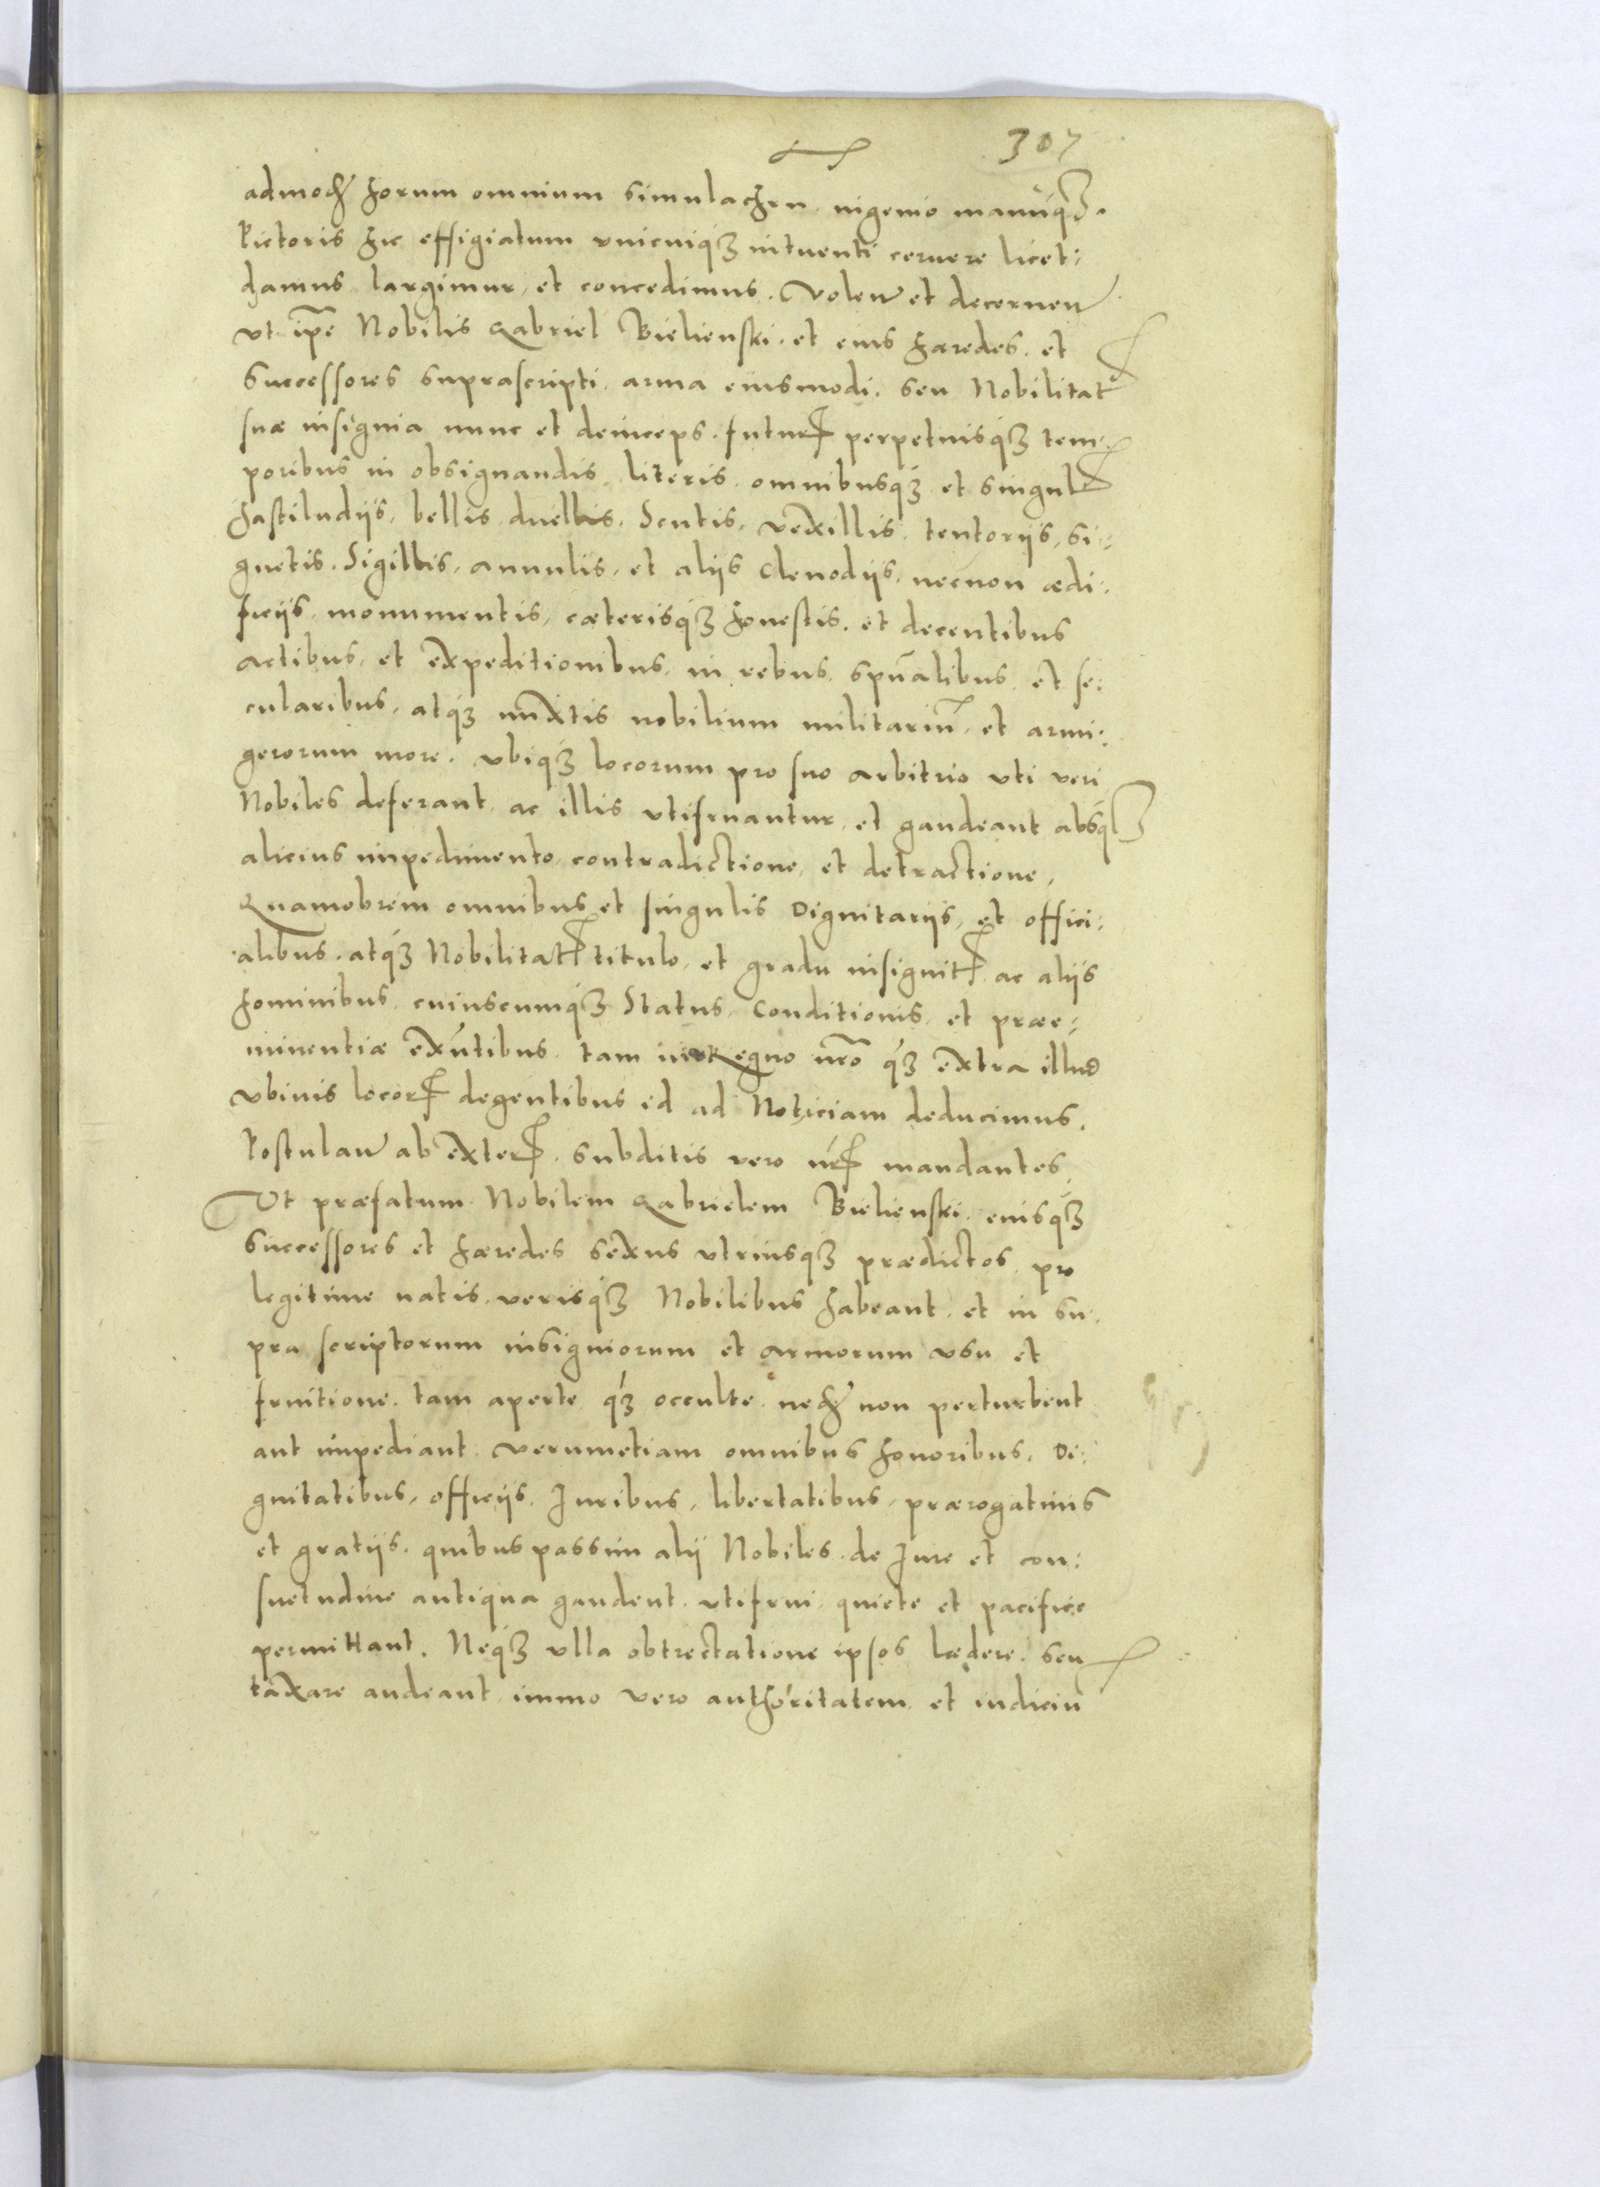 307
admod' horum omnium simulachru ingenio manuq3.
Pictoris hic effigiatum vnicuiq3 intuenti cernere licet:
damus largimur, et concedimus. Volen et decernen
vt ip̃e Nobilis Gabriel Bielienski. et eius hæredes. et
successores suprascripti. arma eiusmodi. seu Nobilitat
suæ insignia nunc et deinceps. futur perpetuisq3 tem
poribus in obsignandis literis omnibusq3 et singul
hastiludijs, bellis duellis. Scutis, vexillis tentorijs, si:
gnetis. Sigillis, annulis, et alijs Clenodijs, necnon ædi:
ficijs, monumentis, cæterisq3 honestis. et decentibus
actibus, et expeditionibus, in rebus, spũalibus et se:
cularibus, atq3 mixtis nobilium militariũ, et armi:
gerorum more. vbiq3 locorum pro suo arbitrio vti veri
Nobiles deferant ac illis vtifruantur, et gaudeant absq3
alicius impedimento contradictione, et detractione,
Quamobrem omnibus et singulis Dignitarijs, et offici:
alibus. atq3 Nobilitat titulo, et gradu insignit ac alijs
hominibus cuiuscumq3 Status, Conditionis, et præe:
minentiæ exũtibus. tam in Regno nr̃o q3 extra illud
vbiuis locor degentibus id ad Noticiam deducimus.
Postulan ab exter. subditis vero nr̃ mandantes,
Vt præfatum Nobilem Gabrielem Bielienski. eiusq3
successores et hæredes sexus vtriusq3 prædictos pro
legitime natis. verisq3 Nobilibus habeant. et in su:
pra scriptorum insigniorum et armorum vsu et
fruitione. tam aperte q3 occulte. ned' non perturbent
aut impediant. verumetiam omnibus honoribus. Di:
gnitatibus, officijs. Juribus, libertatibus, prærogatiuis
et gratijs. quibus passim alij Nobiles. de Jure et con:
suetudine antiqua gaudent. vtifrui. quiete et pacifice
permittant. Neq3 vlla obtrectatione ipsos lædere. seu
taxare audeant immo vero authoritatem et iudiciũ